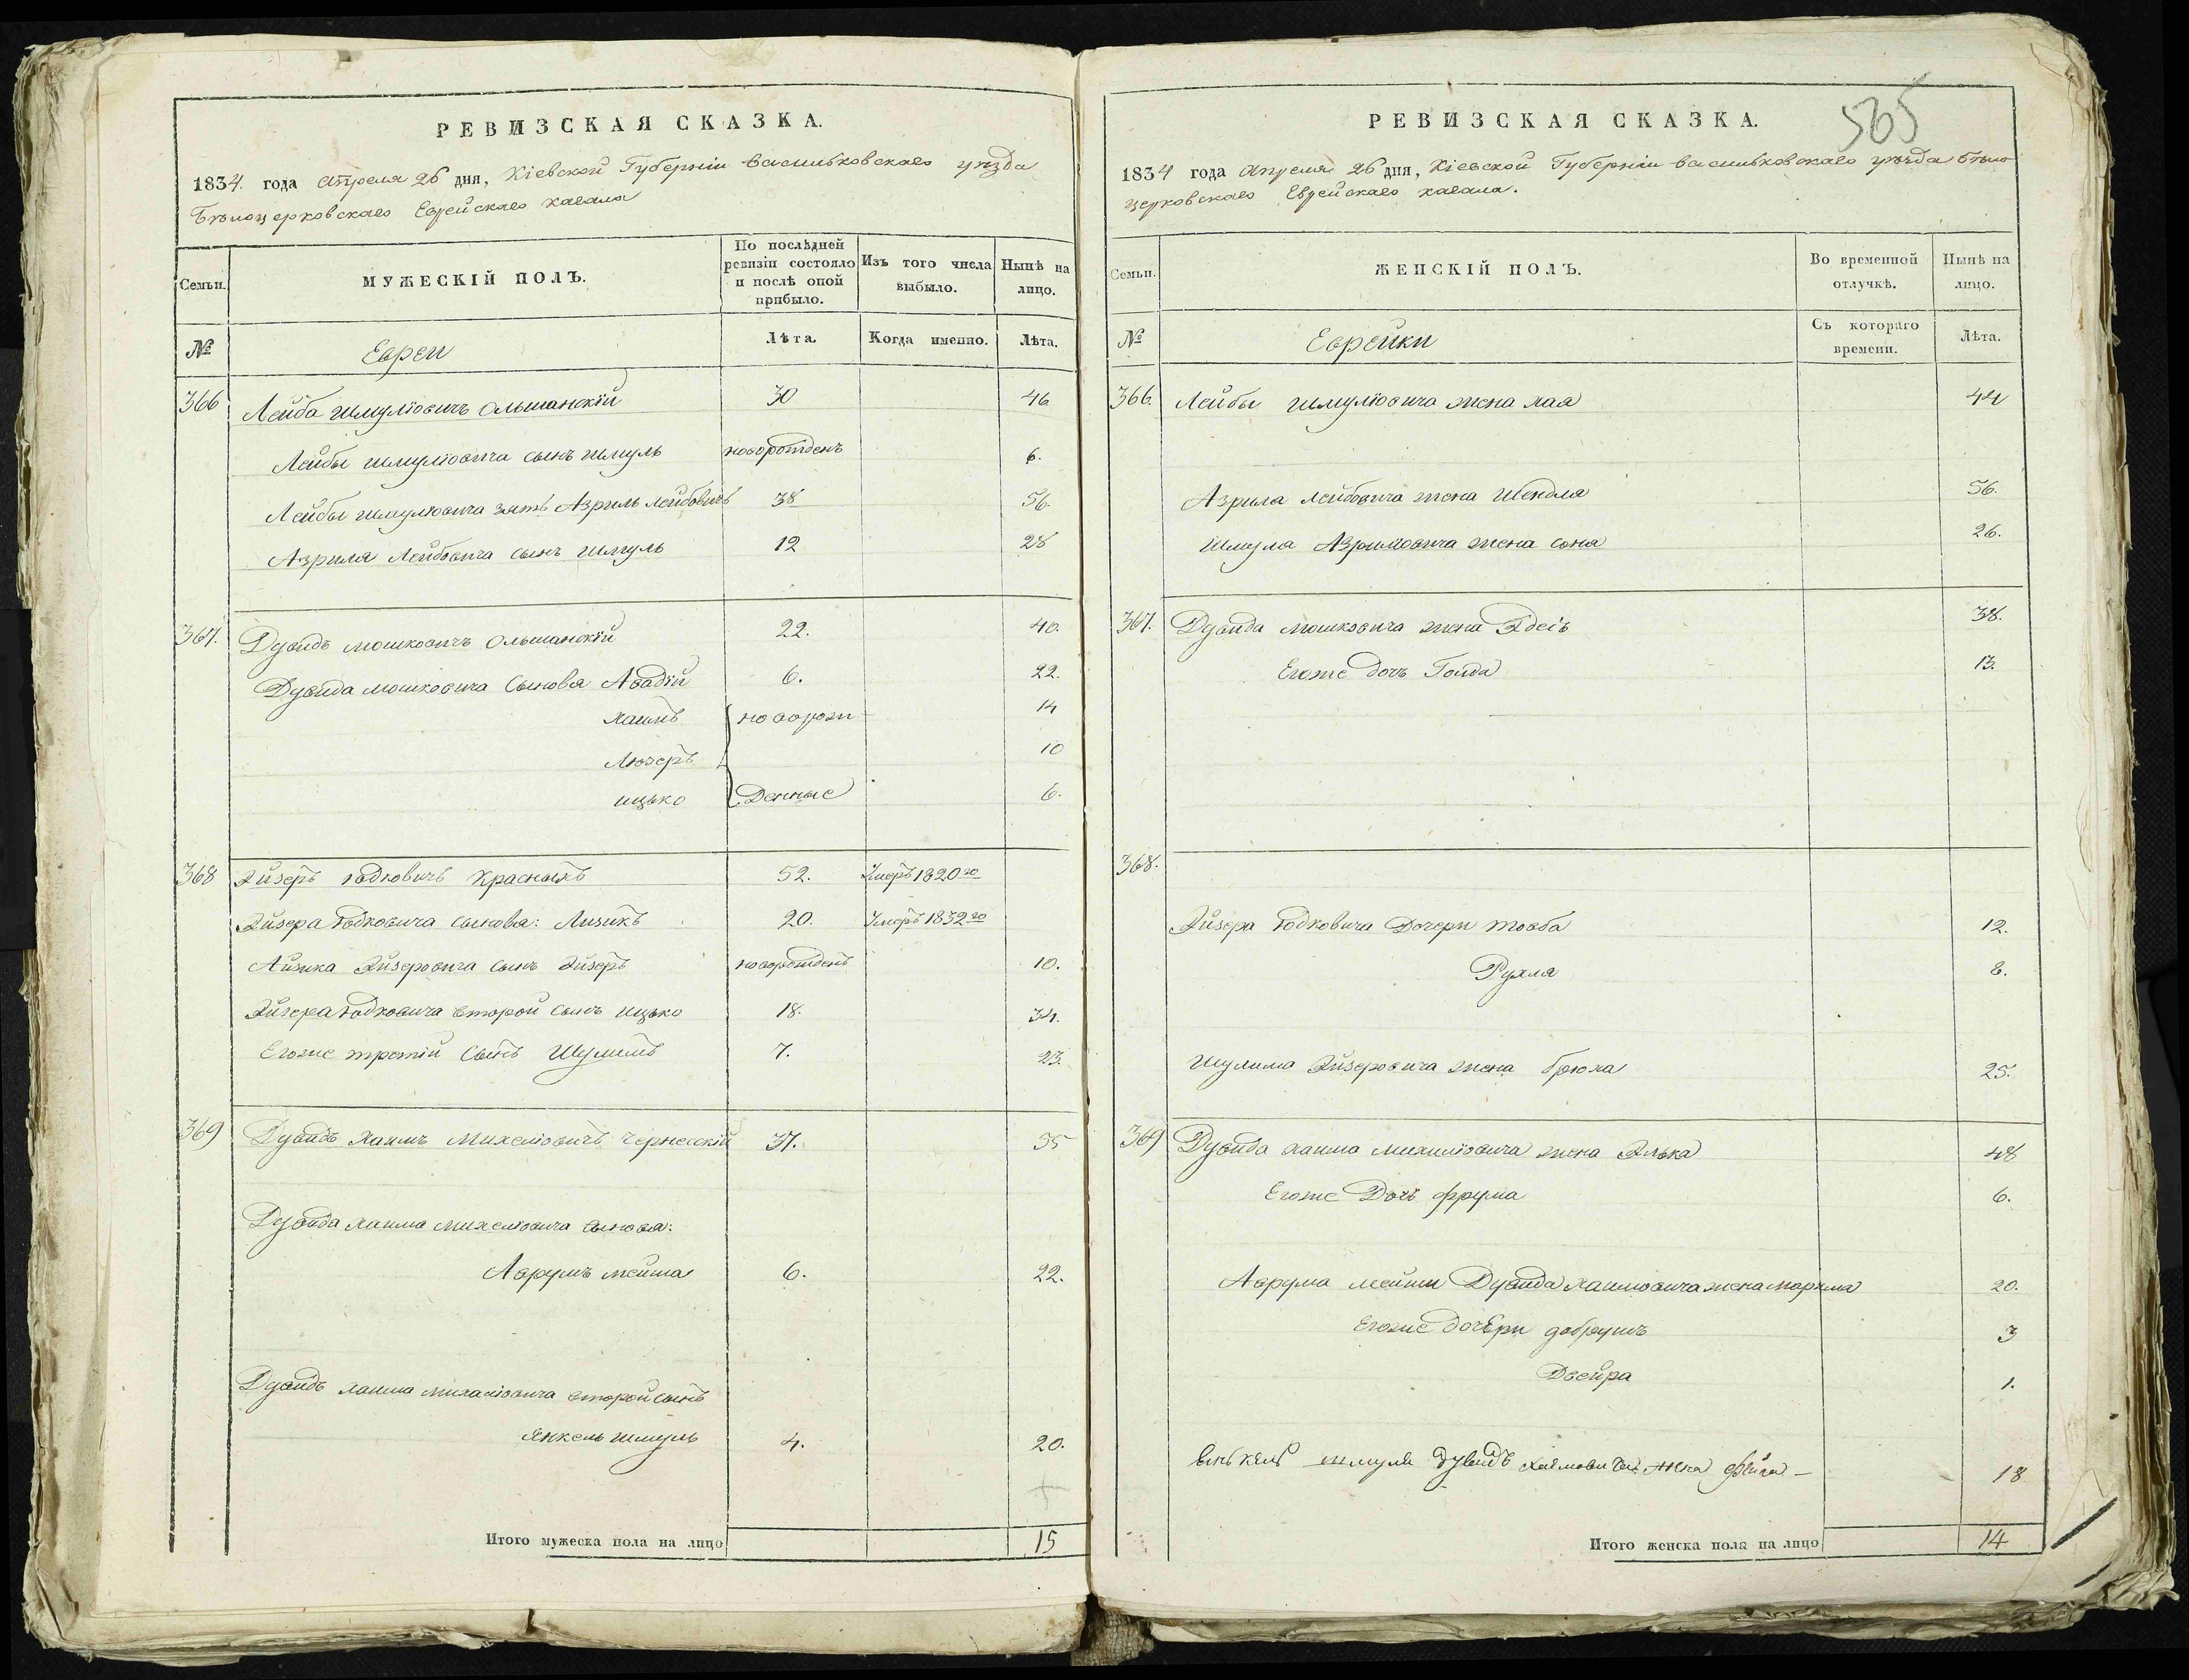 РЕВИЗСКАЯ СКАЗКА.
1834. года Апреля 26 дня, Кіевской Губерніи Васильковскаго уѣзда
Бѣлоцерковскаго Еврейскаго кагала
Семьи.
МУЖЕСКІЙ ПОЛЪ.
По послѣдней ревизіи состояло и послѣ оной прибыло.
Изъ того числа выбыло.
Нынѣ на лицо.
№
Евреи
Лѣта.
Когда именно.
Лѣта.
366 Лейба Шмуліовичъ Ольшанскій 30 46
Лейбы Шмуліовича сынъ Шмуль новорожденъ 6.
Лейбы Шмуліовича зять Азриль Лейбовичъ 38 56.
Азриля Лейбовича сынъ Шмуль 12 28
367. Дувидъ Мошковичъ Ольшанскій 22. 40.
Дувида Мошковича сыновя Авадій 6. 22.
Хаимъ новорож 14
Люзеръ 10
Ицько денные 6.
368 Эйзеръ Юдковичъ Красныхъ 52. Умеръ 1820 го
Эйзера Юдковича сыновя: Айзикъ 20. Умеръ 1832 го
Айзика Эйзеровича сынъ Эйзеръ новорожденъ 10.
Эйзера Юдковича второй сынъ Ицько 18. 34.
Егоже третій сынъ Шулимъ 7. 23.
369 Дувидъ Хаимъ Михеліовичъ 37. 55
Дувида Хаима Михеліовича сыновя:
Аврумъ Мейша 6. 22.
Дувидъ Хаима Михаліовича второй сынъ
Янкель Шмуль 4. 20.
Итого мужеска пола на лицо 15
565
РЕВИЗСКАЯ СКАЗКА.
1834 года Апреля 26 дня, Кіевской Губерніи Васильковскаго уѣзда Бѣло
церковскаго Еврейскаго кагала.
Семьи.
ЖЕНСКІЙ ПОЛЪ.
Во временной отлучкѣ.
Нынѣ на лицо.
№
Еврейки
Съ котораго времени.
Лѣта.
366. Лейбы Шмуліовича жена Хая 44
Азрила Лейбовича жена Шендля 56.
Шмуля Азриловича жена Соня 26.
367. Дувида Мошковича жена Эдесь 38.
Егоже дочь Голда 13.
368.
Эйзера Юдковича дочери Товба 12.
Рухля 8.
Шулима Эйзеровича жена Брюха 25.
369 Дувида Хаима Михиліовича жена Элька 48
Егоже дочь Фрума 6.
Аврума Мейши Дувида Хаимовича жена 20.
Егоже дочери Добрушъ 3
Двейра 1.
Шмуля Дувидъ Хаимовича жена Фейга – 18
Итого женска пола на лицо 14